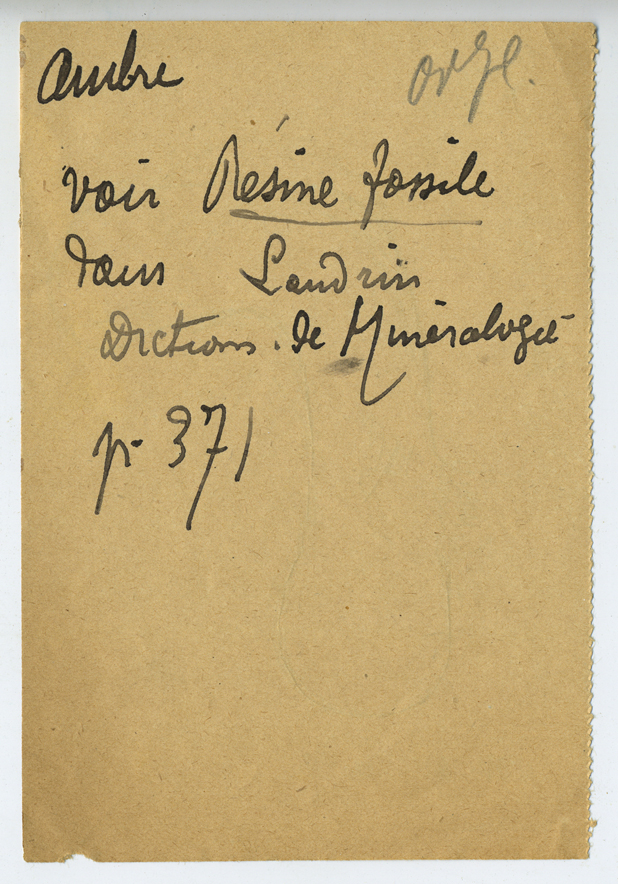 Ambre
voir Résine fossile
dans Landrin
Diction. de Minéralogie
p. 371